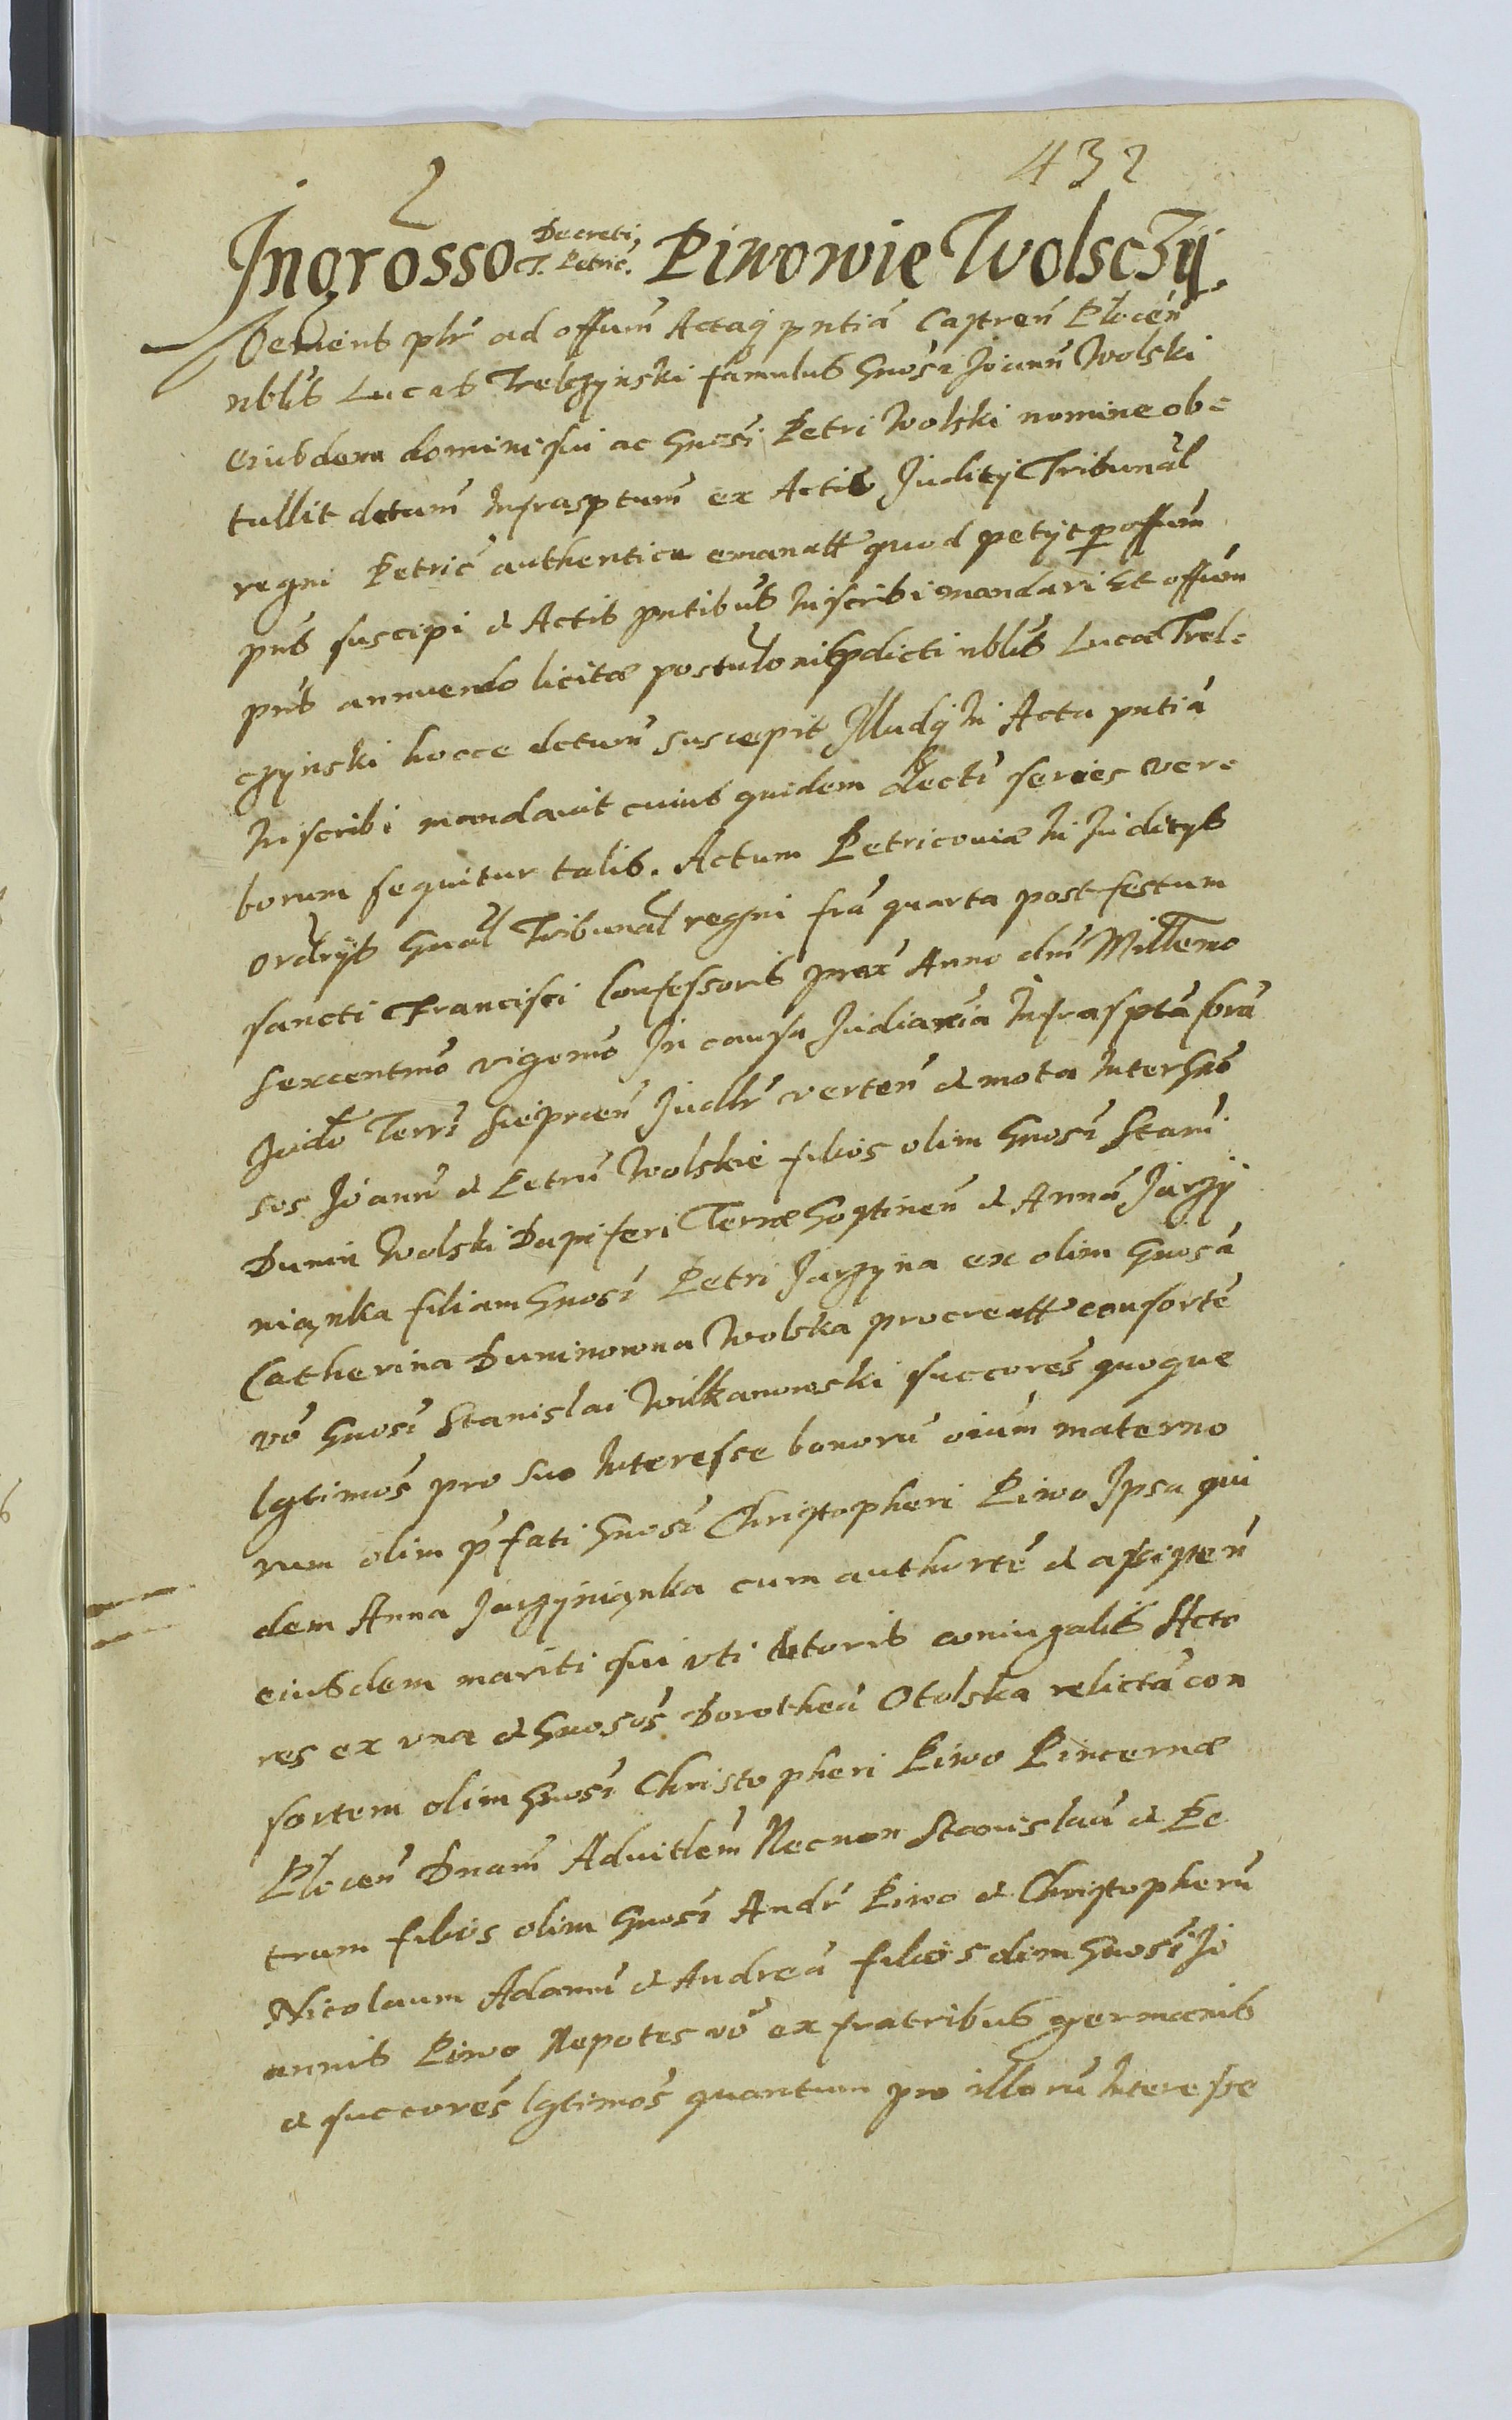 432
Ingrosso Decreti T. Petric. Piwowie Wolsczÿ.
Veniens plr̃ ad offum̃ Actaq̃ pntiã Castren̄ Plocen̄
nblis̃ Lucas Trelczynski famulus Gnosi Joann̄ Wolski
eiusdem domini sui ac Gnosi Petri Wolski nomine ob=
tullit dctum̃ Infrasptum̃ ex Actis Juditÿ Tribunal̃
regni Petric̃ authentice emanatt quod petÿt p offum̃
pñs suscipi & Actis pntibus̃ Inscribi mandari Et offum̃
pñs annuendo licitæ postulõnis pdicti nblis̃ Lucæ Trel=
czynski hocce dctum̃ suscepit Illudq̃ In Acta pntiã
Inscribi mandavit cuius quidem decti series ver=
borum sequitur talis. Actum Petricoviæ In Juditÿs
Ordrÿs Gnal̃ Tribunal̃ regni friã quarta post festum
sancti Francisci Confessoris prox̃ Anno dnĩ Millemo
sexcentmõ vigemõ In causa Judiariã Infrasptã corã
Judõ Terrĩ Sieprcen̄ Judlr̃ verten̄ & mota Inter Gnõ
sos Joann̄ & Petrũ Wolskie filios olim Gnosĩ Stanĩ
Dunin Wolski Dapiferi Terræ Gostinen̄ & Annã Jarzÿ
nianka filiam Gnosĩ Petri Jarzyna ex olim Gnosã
Catherina Duninowna Wolska procreatt consortẽ
võ Gnosĩ Stanislai Wilkanowski succorẽs quoque
lgtimõs pro suo Interesse bonorũ oiũm materno
rum olim pfati Gnosĩ Christopheri Piwo Ipsa qui
dem Anna Jarzynianka cum authortẽ & assisten̄
eiusdem mariti sui uti tutoris coniugalis Acto
res ex una & Gnosõs Dorotheã Otolska relictã con
sortem olim Gnosĩ Christopheri Piwo Pincernæ
Plocen̄ Dnam̃ Advitlem̃ Necnon Stanislaũ & Pe
trum filios olim Gnosĩ Andr̃ Piwo & Christopherũ
Nicolaum Adamũ & Andreã filios olim Gnosĩ Jo
annis Piwo Nepotes võ ex fratribus germanis
& succorẽs lgtimõs quantum pro illorũ Interesse